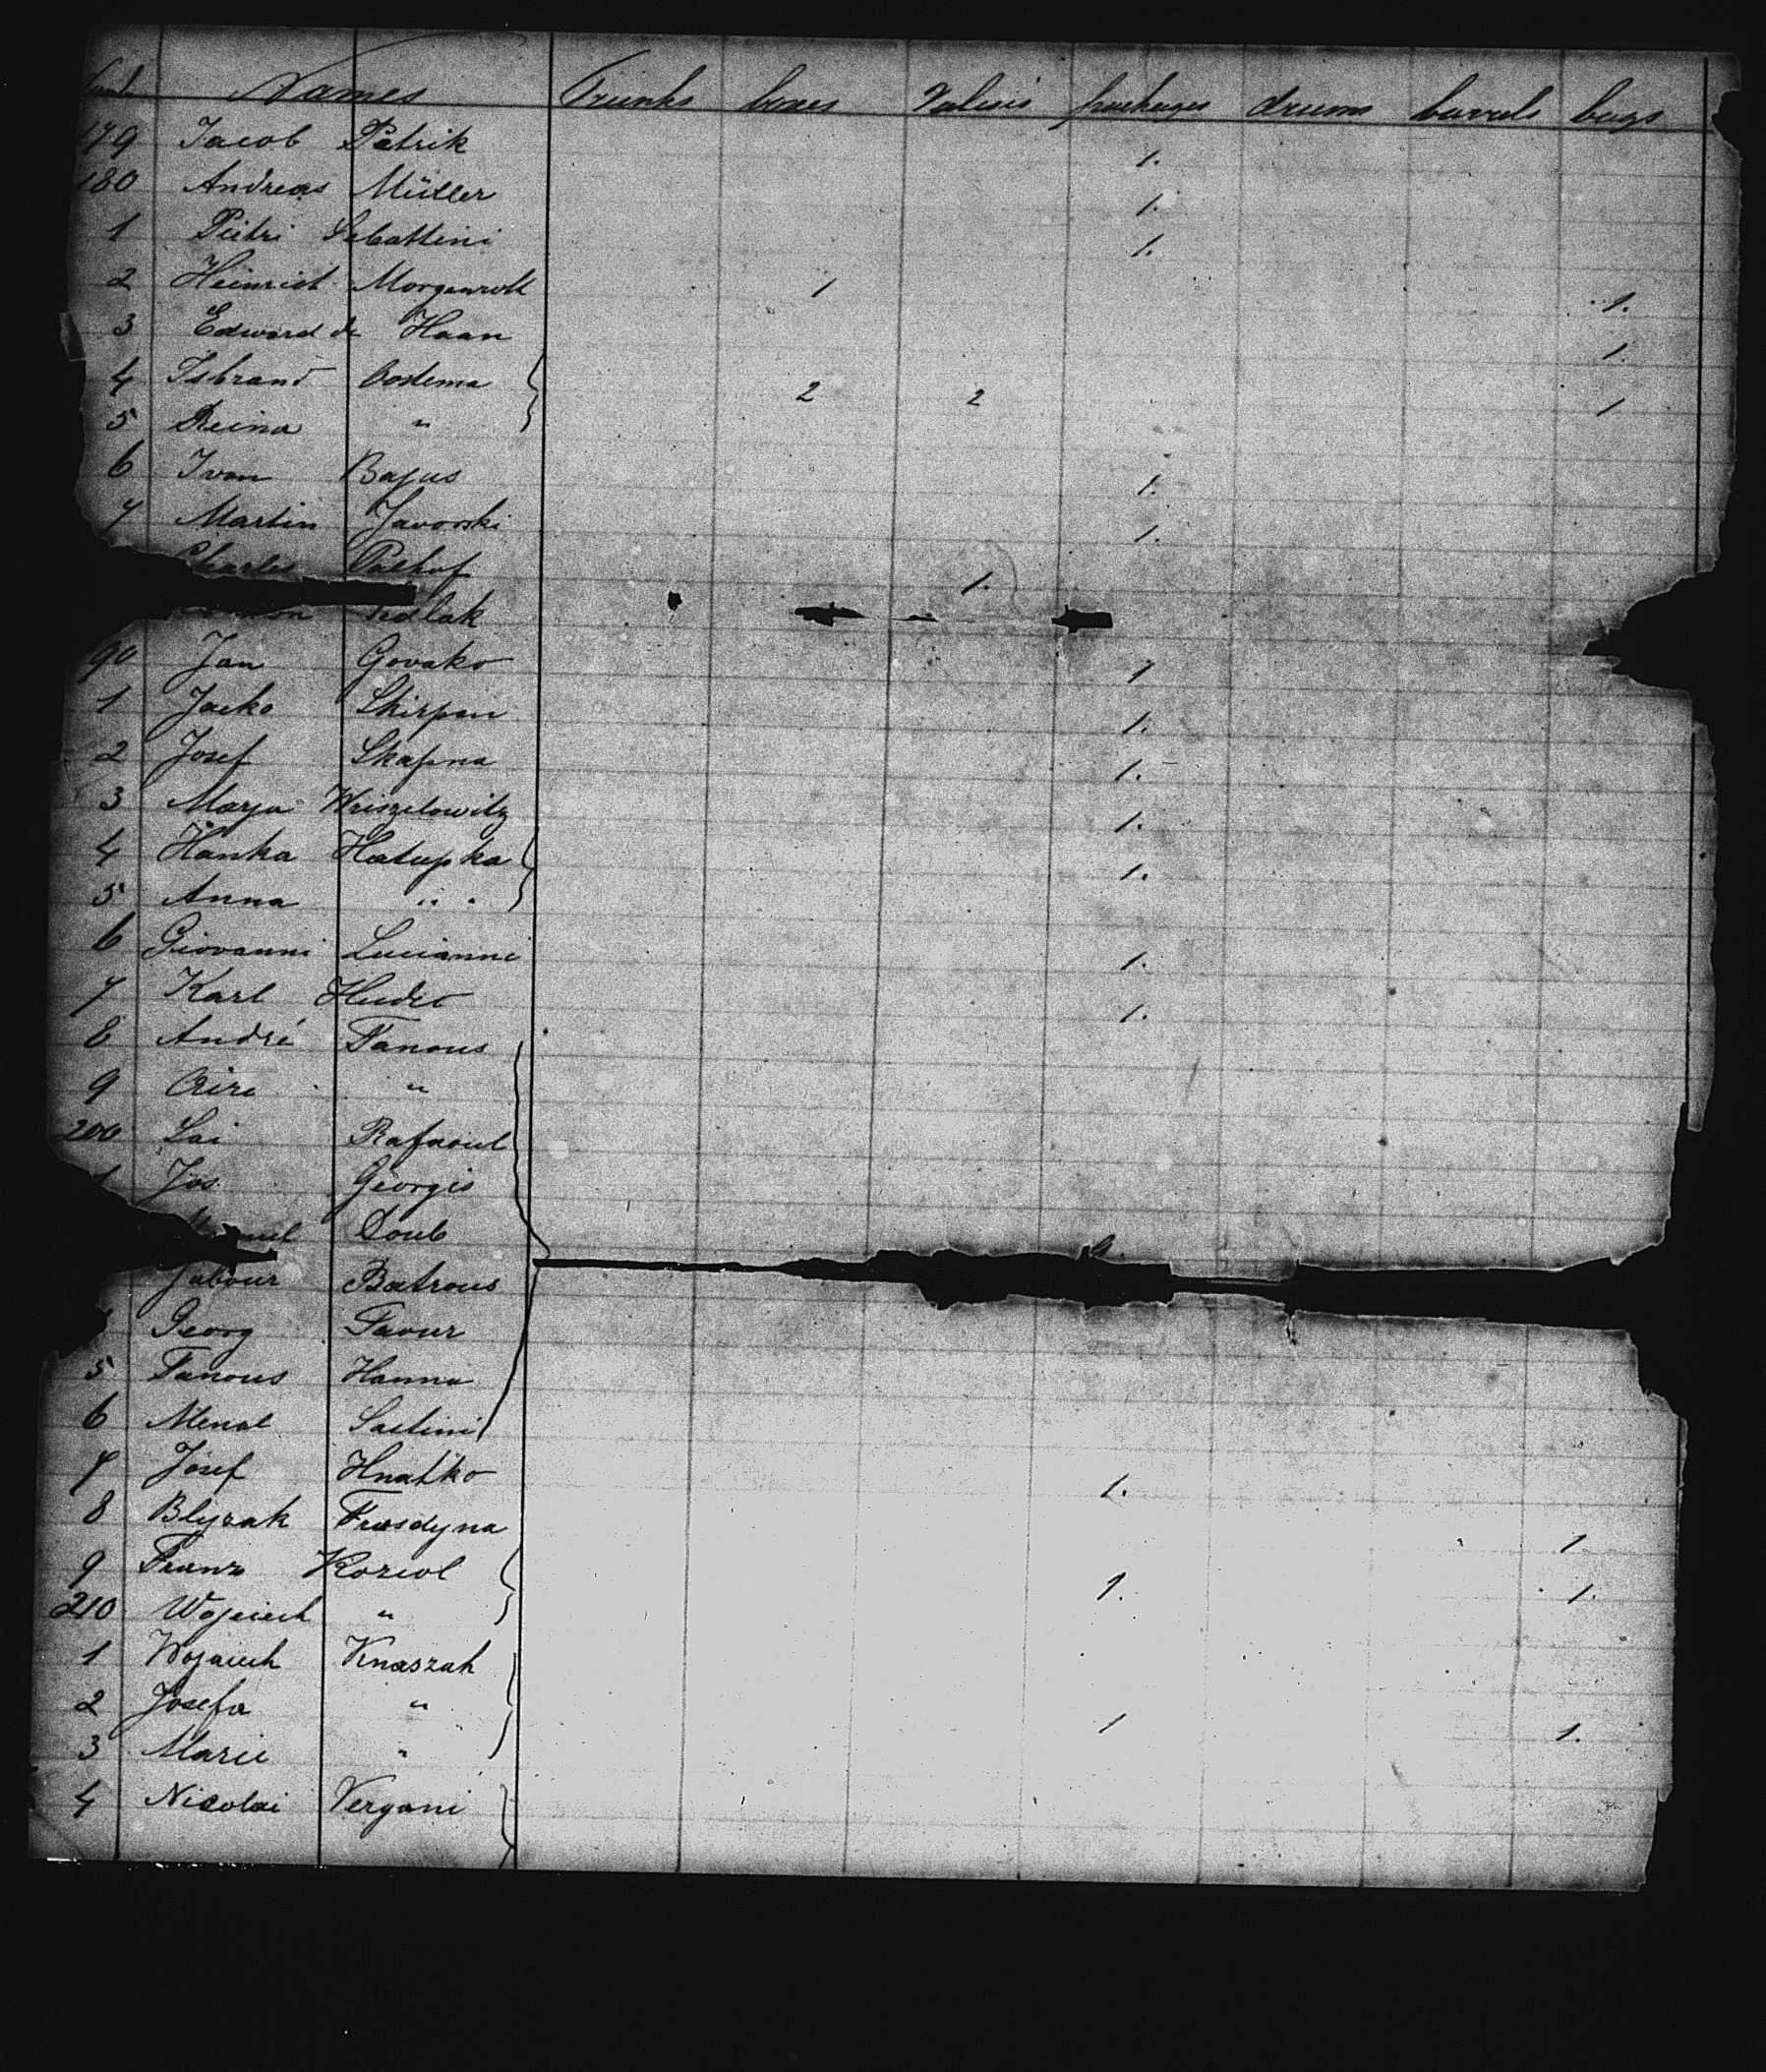 Names Trunks boxes Valises packages drums barrels bags
179 Jacob Petrik 1.
180 Andreas Müller 1.
1 Pietri Sabattini 1.
2 Heinrich Morgenroth 1 1.
3 Edward de Haan 1.
4 Isbrand Oostema 2 2 1
5 Reina "
6 Ivan Bajus 1.
7 Martin Javorski 1.
Charles 1.
90 Jan Govako 1
1 Jacko Skirpan 1.
2 Josef Skapna 1.
3 Marya Wriszelowitz 1.
4 Hanka Hatupka 1.
5 Anna " "
6 Giovanni Lucianni 1.
7 Karl 1.
8 André Fanous
9 "
200 Rafaoul
1 Jos. Georgis
Doub 9.
Jabour Batrous
Georg Faour
5 Fanous Hanna
6 Menal
7 Josef Hnatko 1.
8 Blyzak Frasdyna 1.
9 Franz Koziol 1. 1.
210 Wojciech "
1 Wojciech Knaszak
2 Josefa " 1 1.
3 Marie "
4 Nicolai Vergani